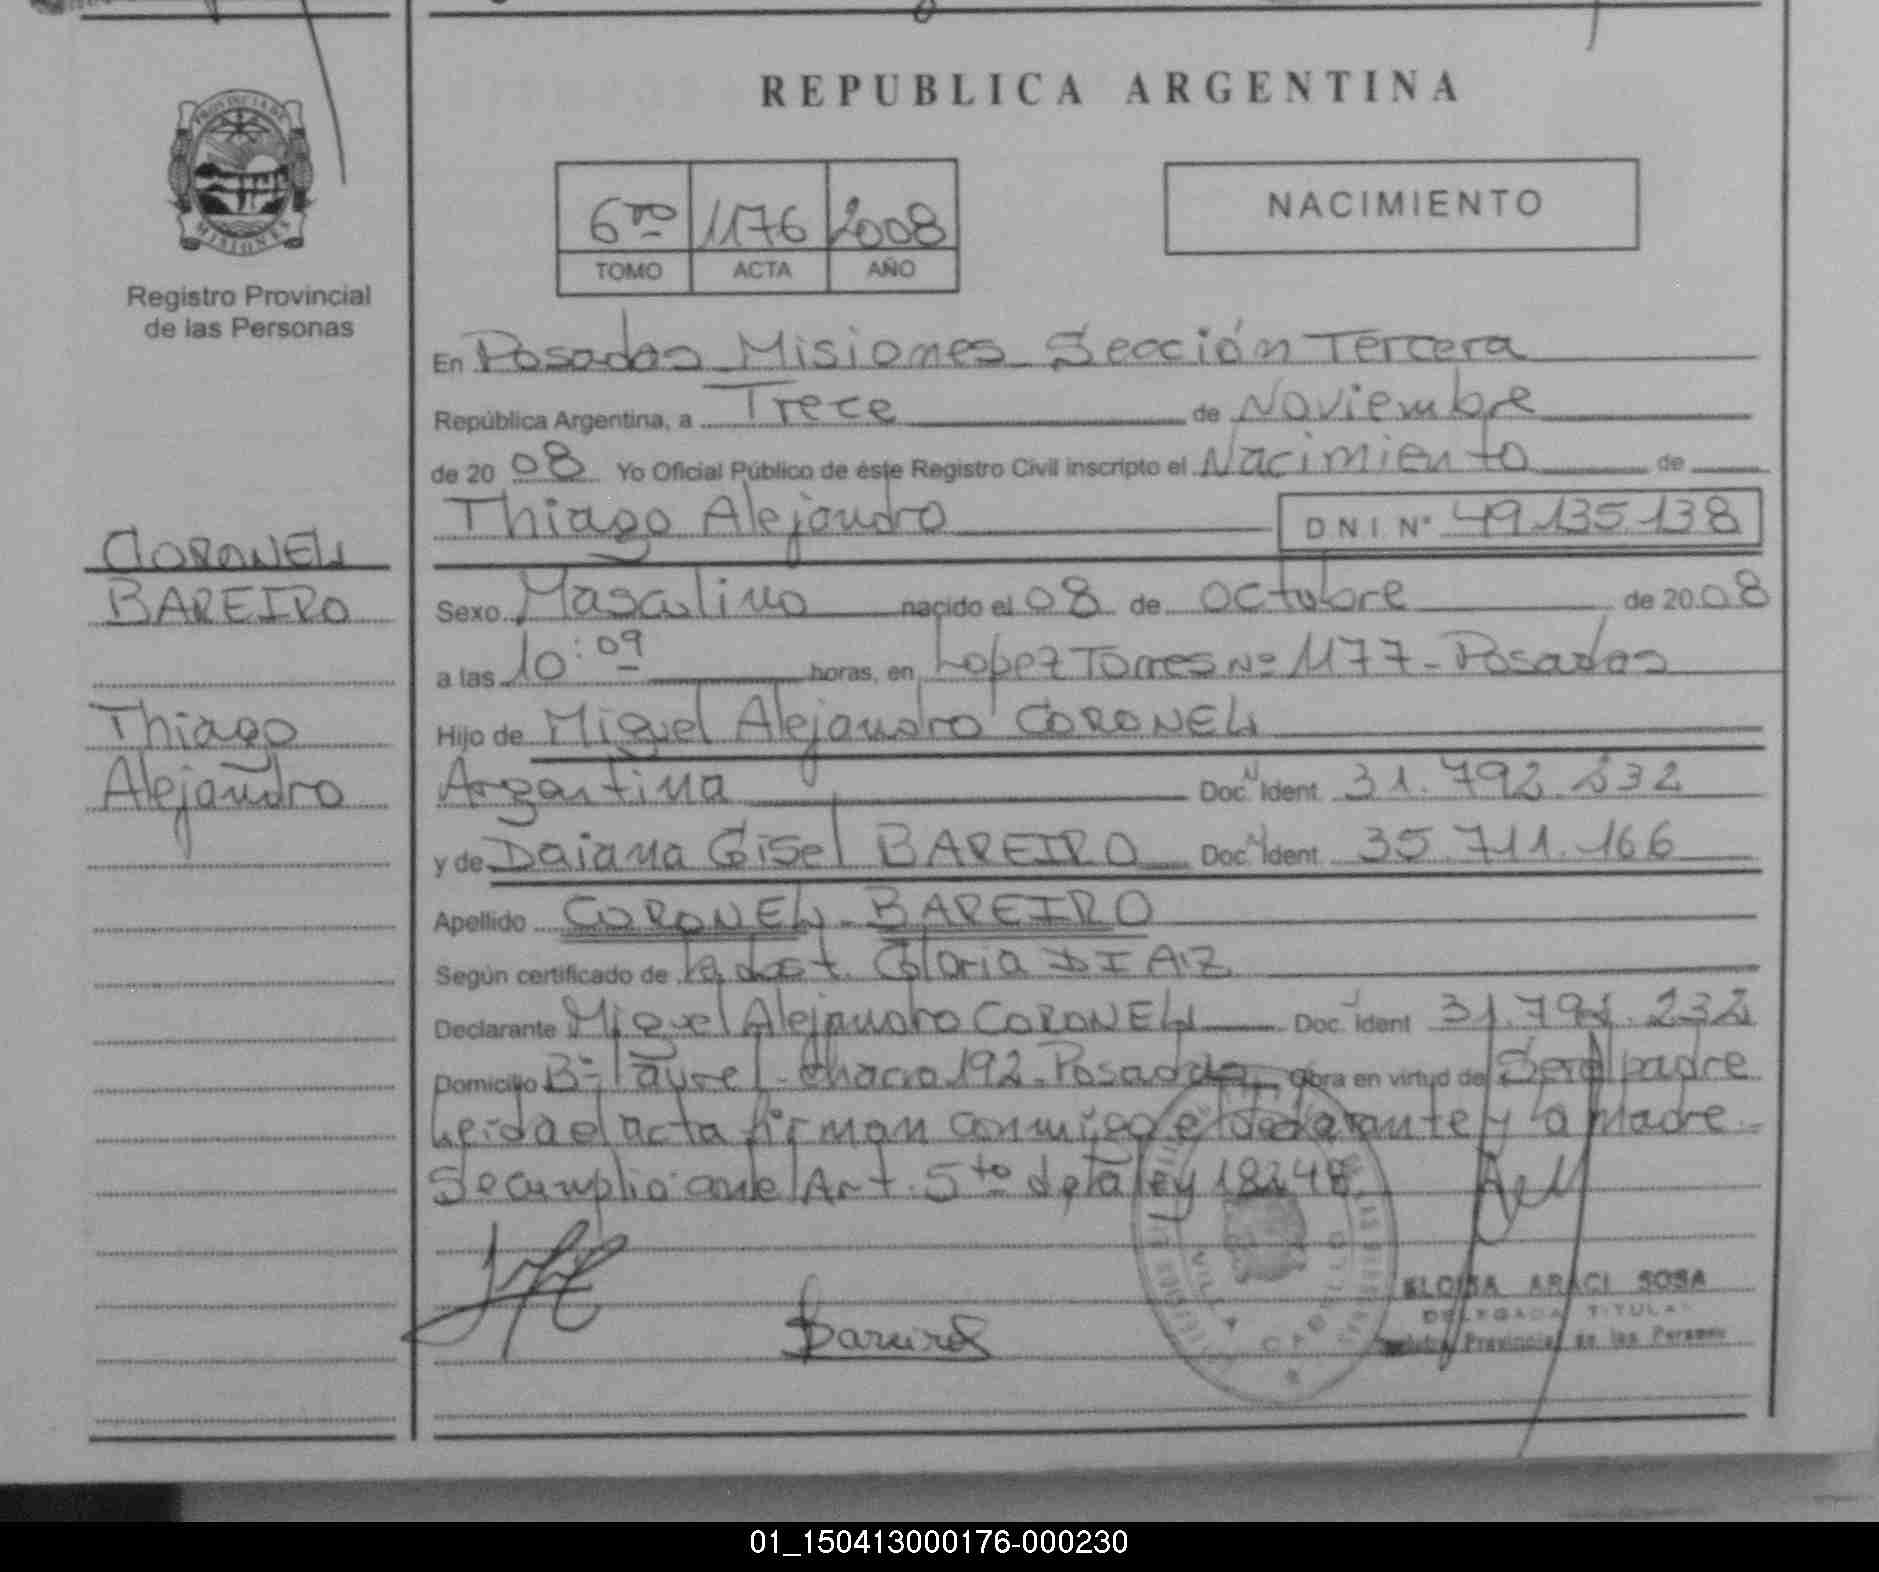 REPUBLICA ARGENTINA
PROVINCIA DE
MISIONES
Registro Provincial
de las Personas
6to 1176 2008
TOMO ACTA AÑO
NACIMIENTO
En Posadas Misiones Sección Tercera
República Argentina, a Trece de Noviembre
de 2008 Yo Oficial Público de éste Registro Civil inscripto el Nacimiento de
Thiago Alejandro DNI Nº 49.135.138
CORONEL
BAREIRO
Thiago
Alejandro
Sexo Masculino nacido el 08 de octubre de 2008
a las 10:09 horas, en Lopez Torres Nº 1177 - Posadas
Hijo de Miguel Alejandro CORONEL
Argentina Doc. Ident. 31.792.232
y de Daiana Gisel BAREIRO Doc. Ident. 35.711.166
Apellido CORONEL - BAREIRO
Según certificado de la obst. Gloria DIAZ
Declarante Miguel Alejandro CORONEL Doc. Ident 31.792.232
Domicilio Bº Laurel - Chacra 192 - Posadas obra en virtud de Ser el padre
Leida el acta firman conmigo el declarante y la Madre -
Se cumplio con el Art. 5to de la ley 18248
Bareiro
VILLA CABELLO
ELOISA ARACI SOSA
DELEGADA TITULAR
Provincial de las Personas
01_150413000176-000230